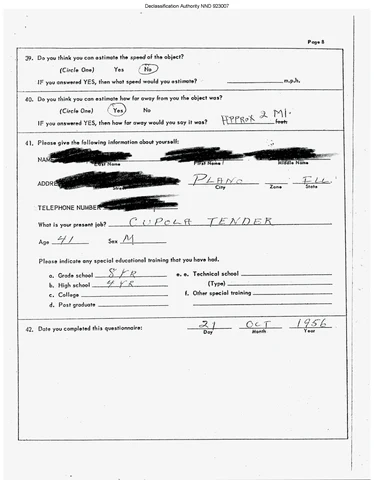 Declassification Authority NND 823007
Page 8
39. Do you think you can estimate the speed of the object?
(Circle One) Yes No
IF you answered YES, then what speed would you estimate? m.p.h.
40. Do you think you can estimate how far away from you the object was?
(Circle One) Yes No
IF you answered YES, then how far away would you say it was? APPROX 2 MI. feet.
41. Please give the following information about yourself:
NAME Last Name First Name Middle Name
ADDRE Street PLANO City Zone ILL State
TELEPHONE NUMBER
What is your present job? CUPOLA TENDER
Age 41 Sex M
Please indicate any special educational training that you have had.
a. Grade school 8 YR e. e. Technical school
b. High school 4 YR (Type)
c. College f. Other special training
d. Post graduate
42. Date you completed this questionnaire: 21 Day OCT Month 1956 Year